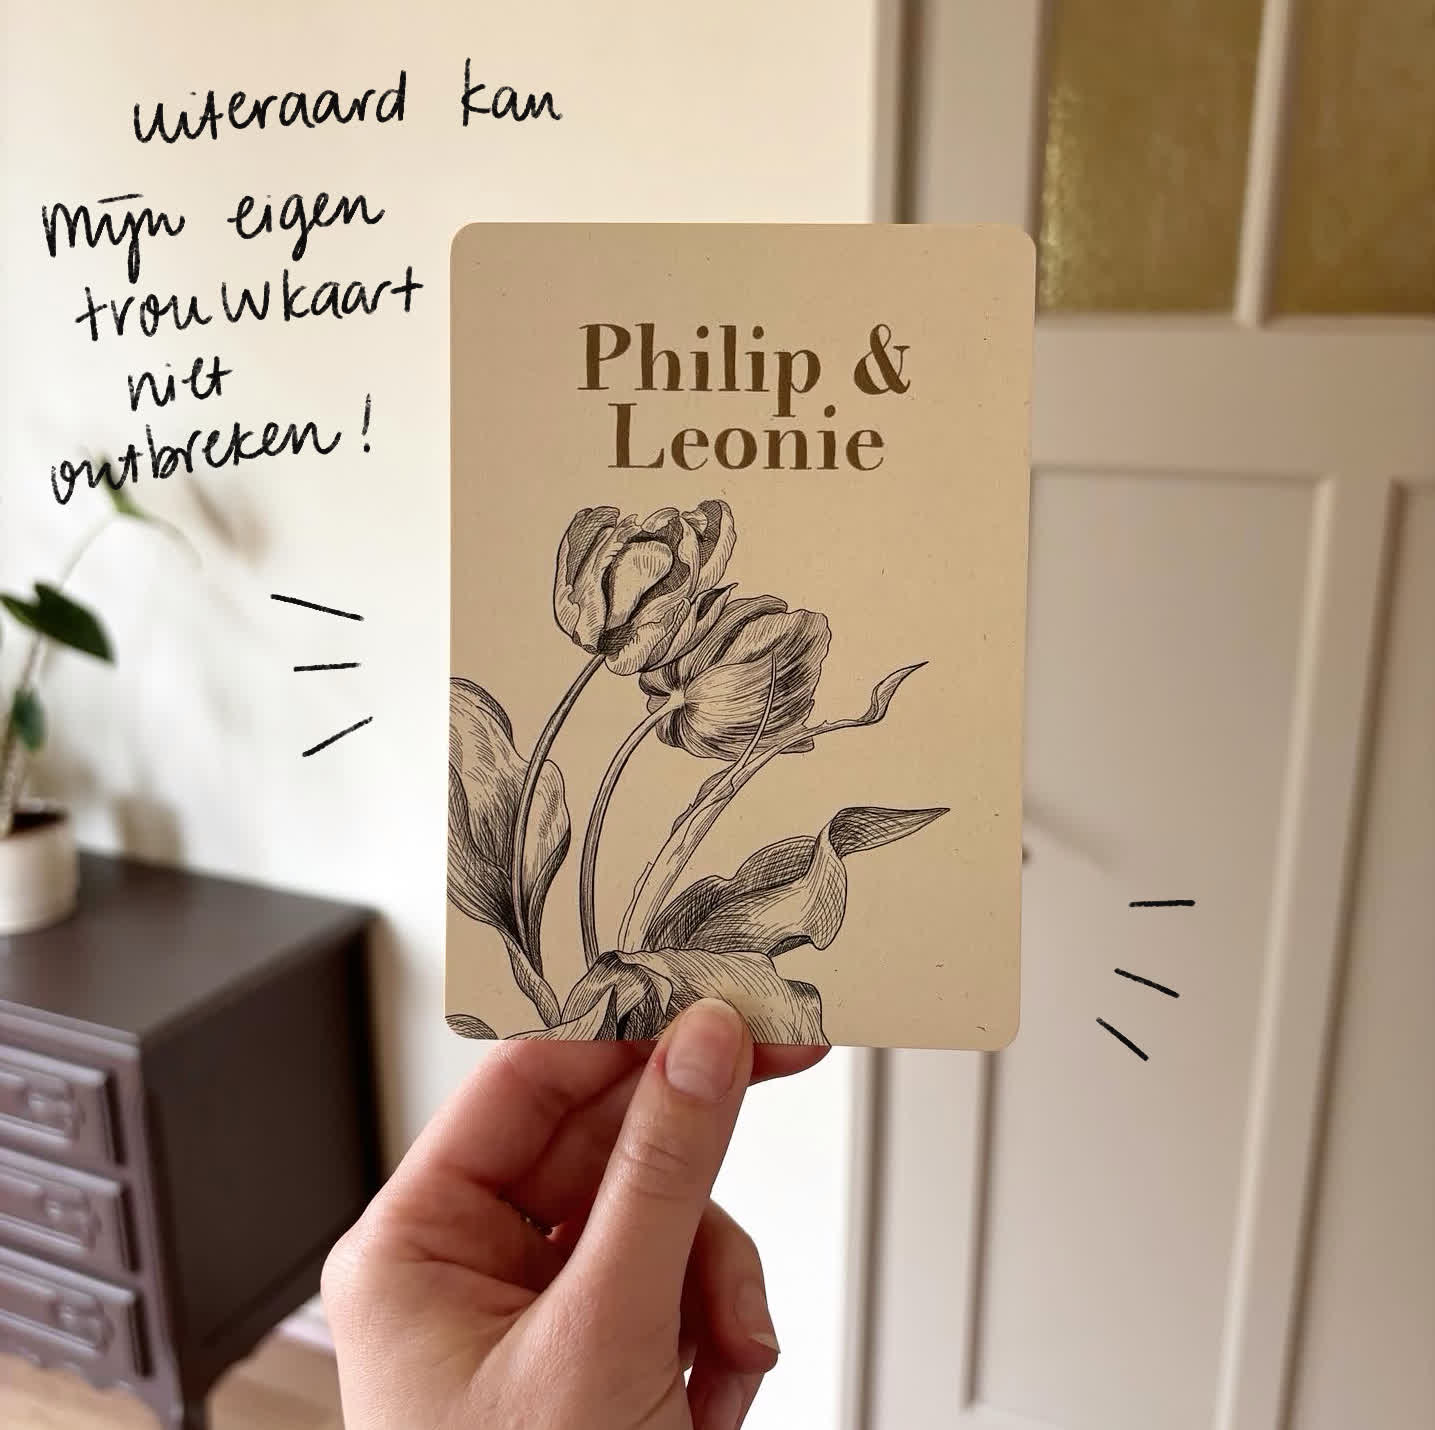 uiteraard kan
mijn eigen
trouwkaart
niet
ontbreken!
Philip &
Leonie